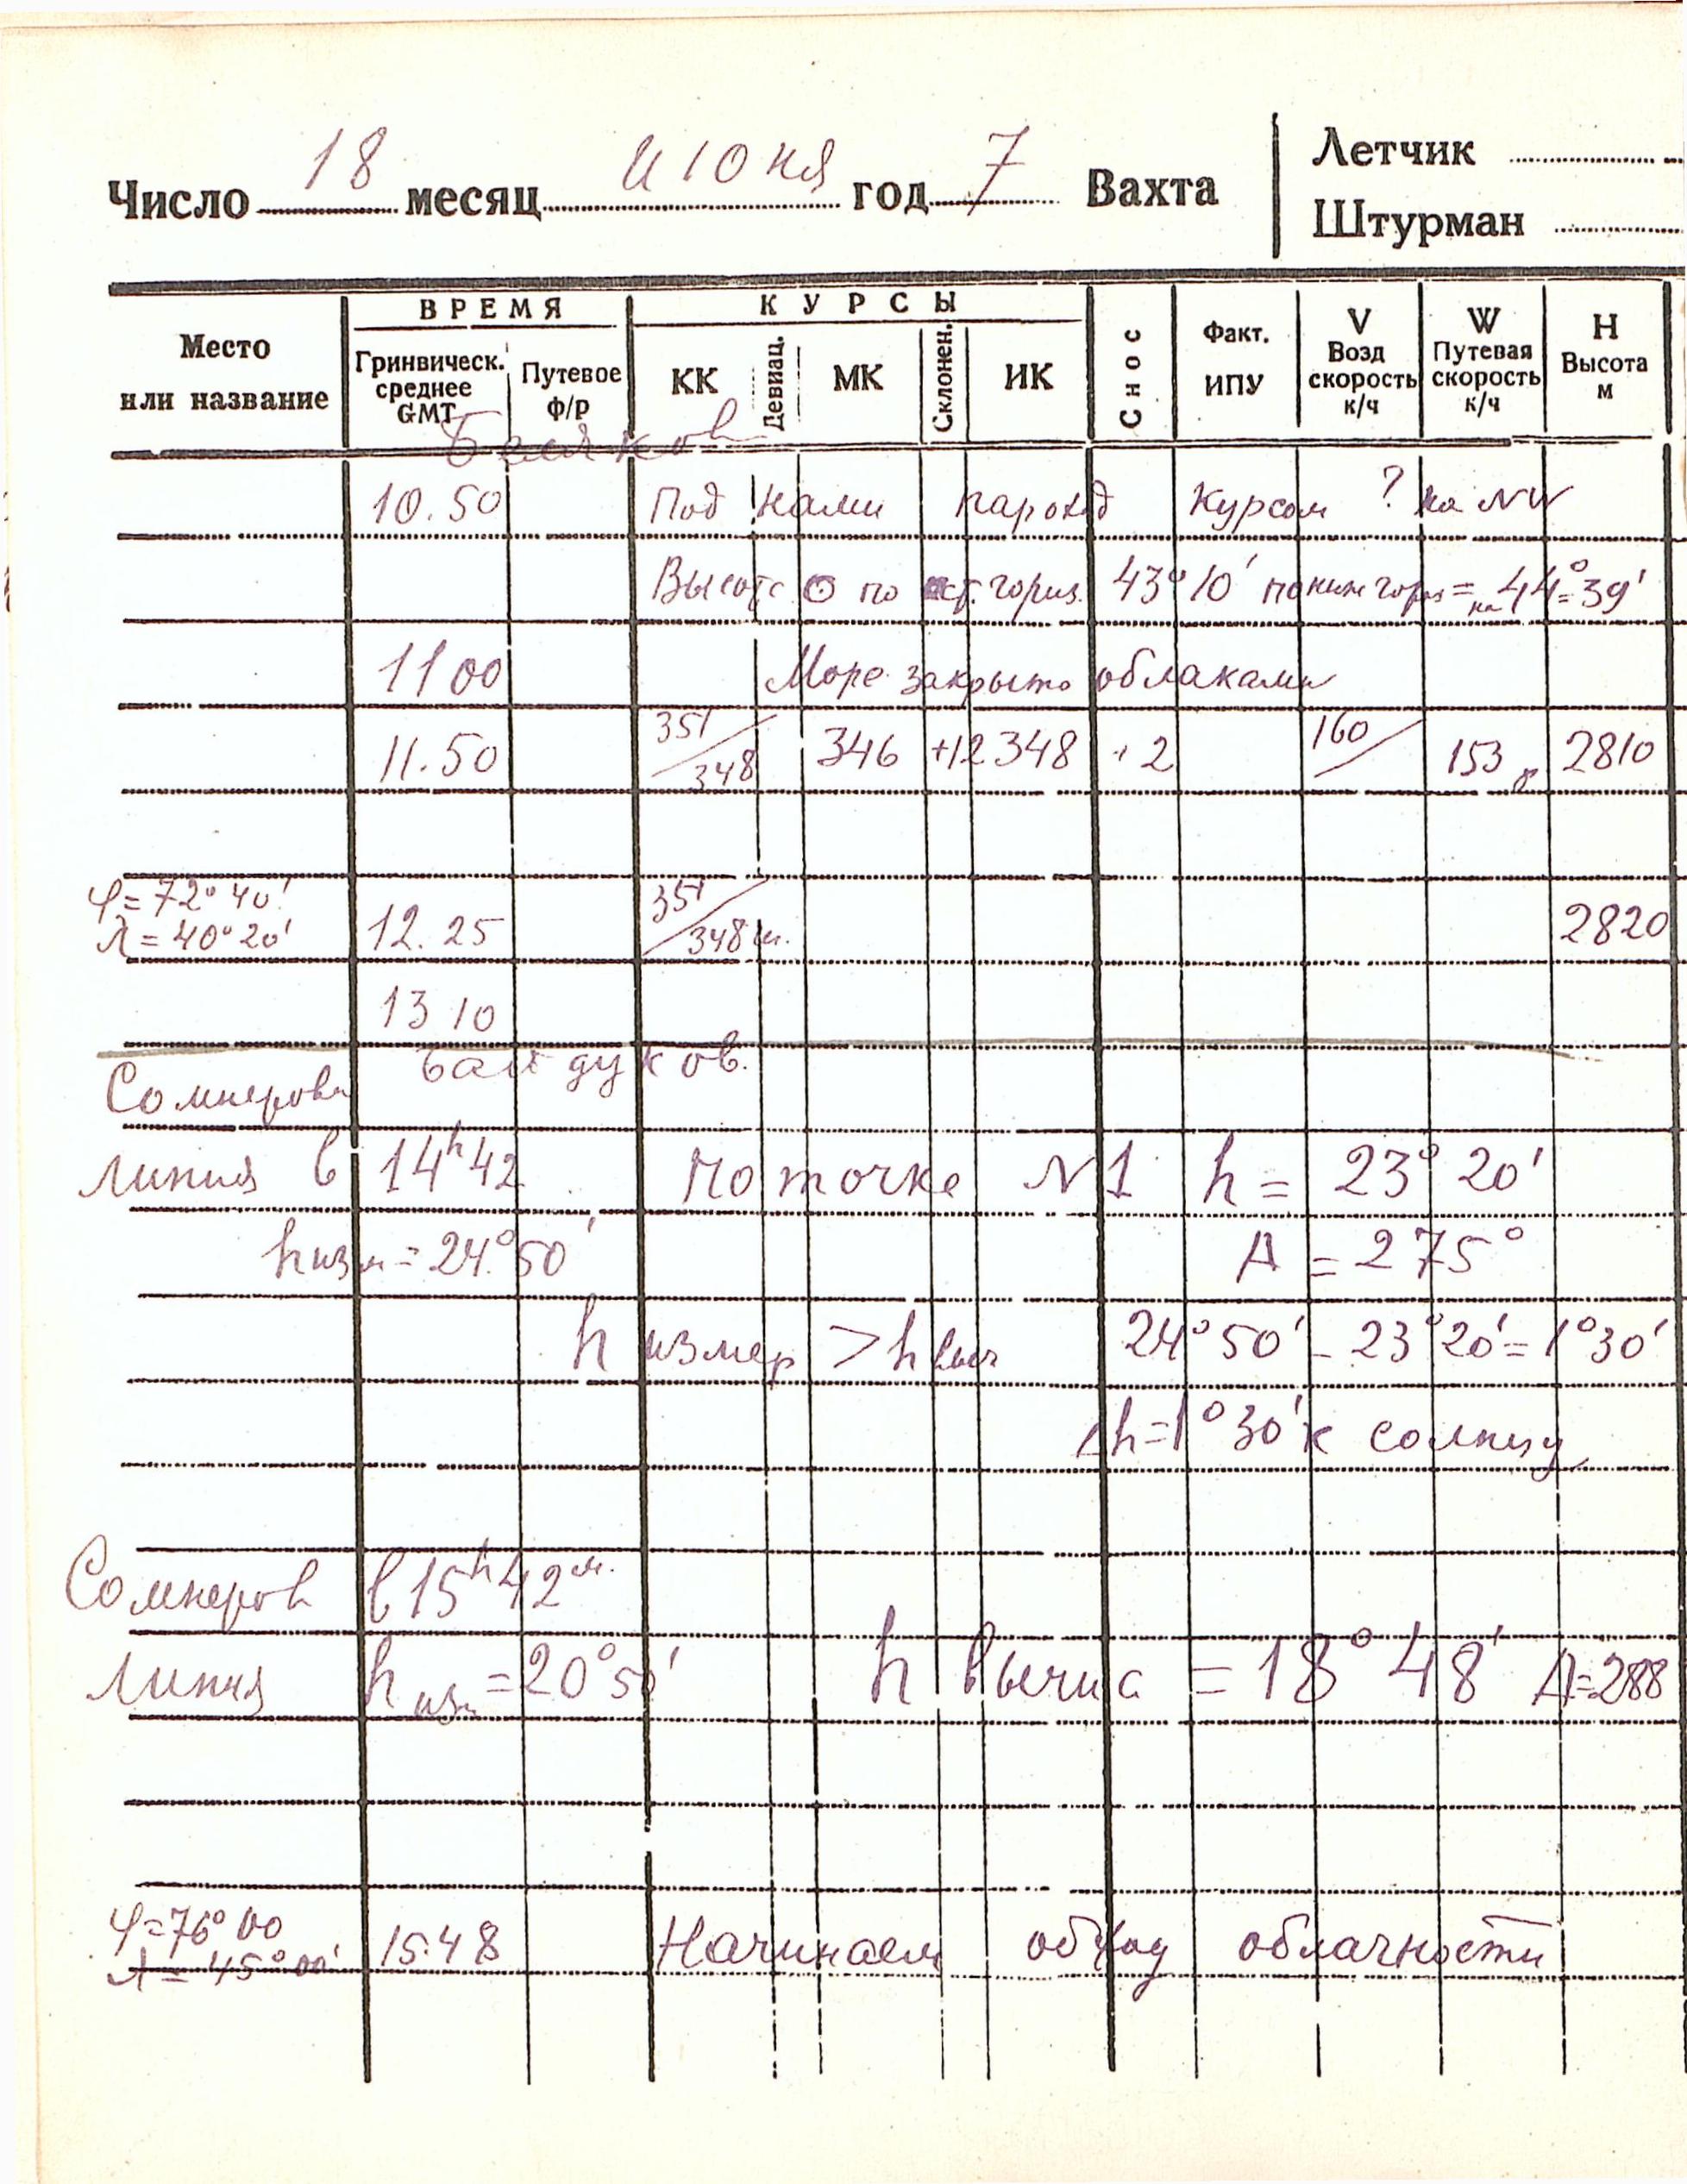 Число 18 месяц июня год 7 Вахта
Летчик
Штурман
Место или название
ВРЕМЯ
Гринвическ. среднее GMT
Путевое ф/р
КУРСЫ
КК
Девиац.
МК
Склонен.
ИК
Снос
Факт. ИПУ
V Возд скорость к/ч
W Путевая скорость к/ч
Н Высота м
10.50 Под нами пароход Курсом ? на NW
Высота ⊙ по гориз. 43°10' = 44°39'
11 00 Море закрыто облаками
11.50 351/348 346 +12 348 +2 160/ 153 2810
φ=72°40'
λ=40°20' 12.25 351/348 2820
13 10
Байдуков.
Сомнерова
линия в 14h42 по точке N1 h = 23°20'
hизм=24°50' A = 275°
h измер > h выч 24°50' - 23°20' = 1°30'
Δh=1°30' к солнцу
Сомнеров в 15h42м.
линия h изм = 20°50' h вычис = 18°48' A=288
φ=76°00
λ=45°00' 15.48 Начинаем обход облачности